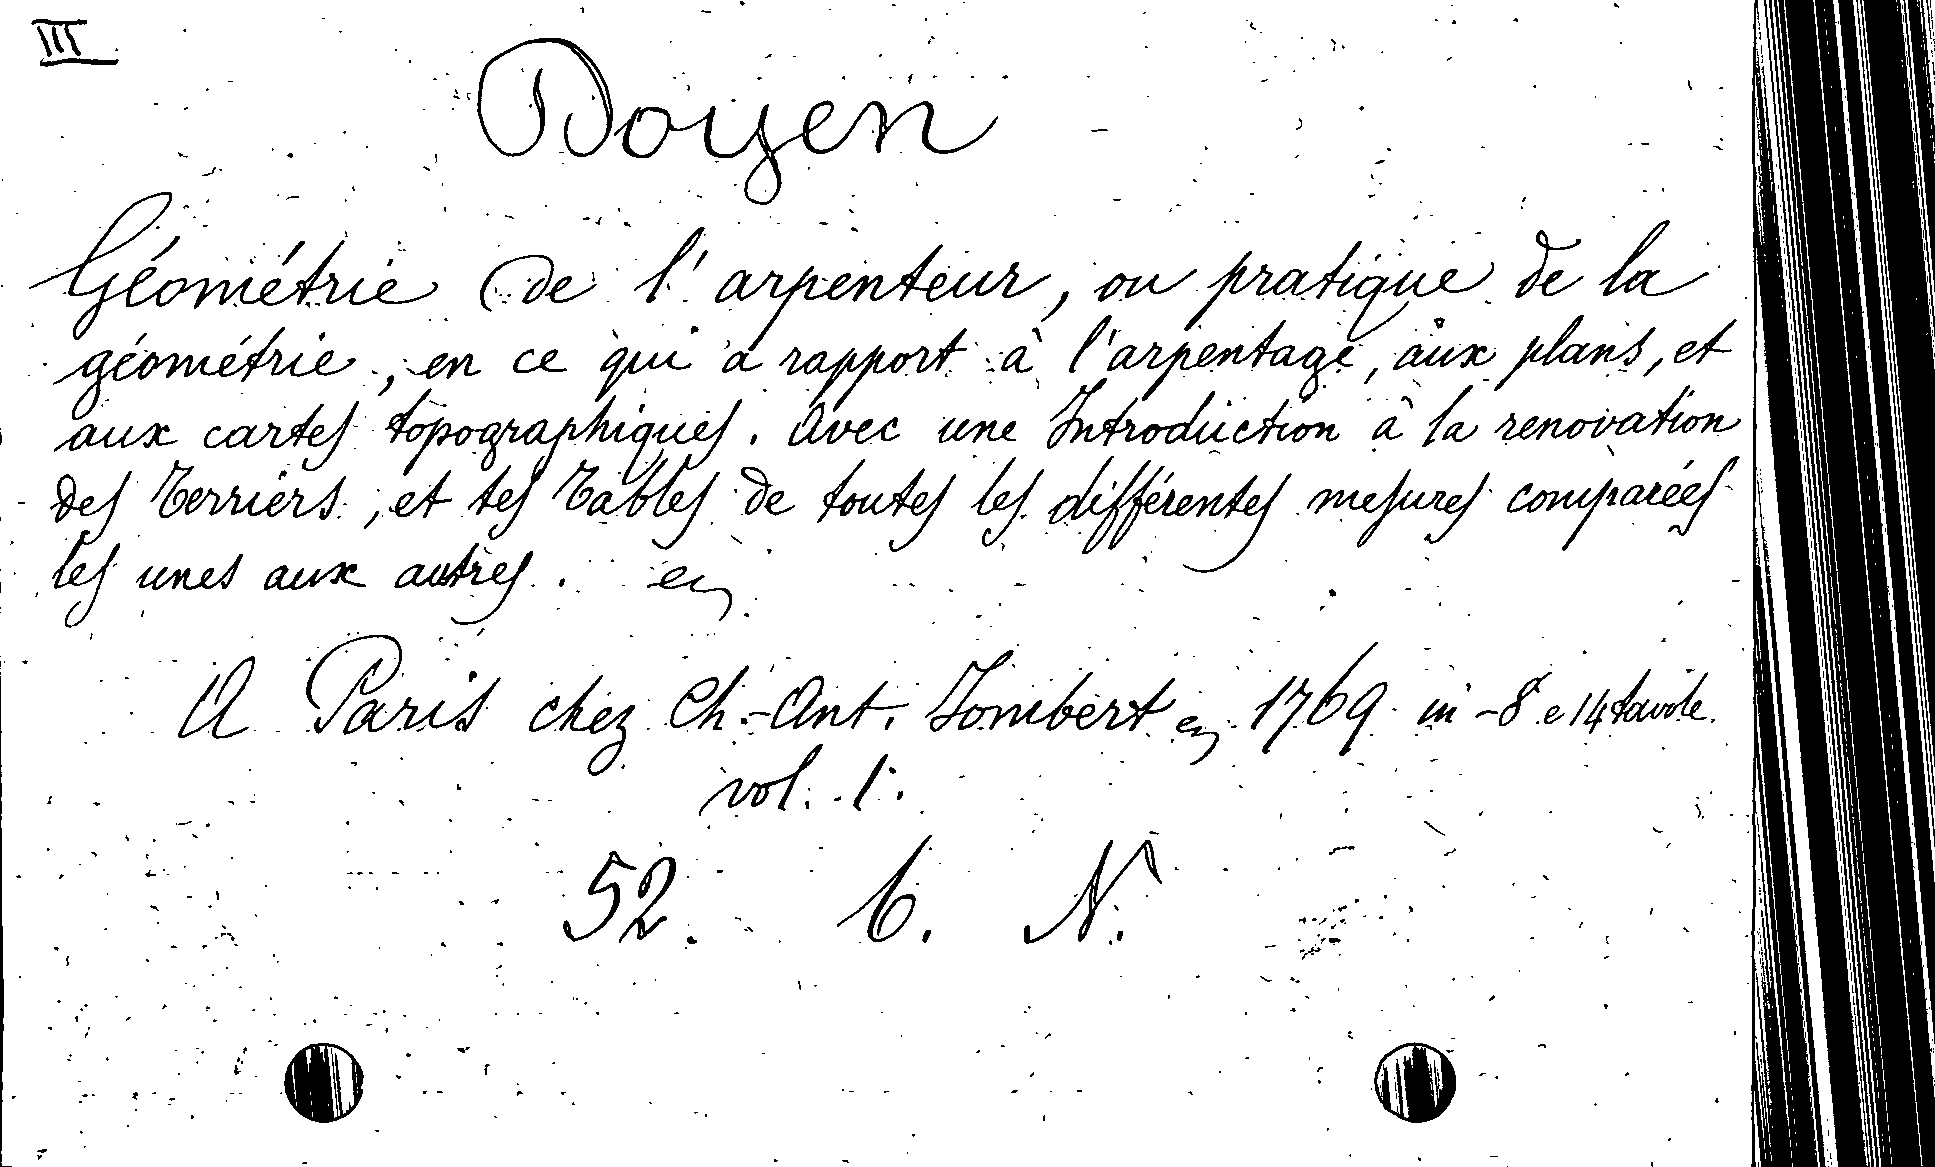 III
Doyen
Géométrie de l'arpenteur, ou pratique de la
géométrie, en ce qui a rapport à l'arpentage, aux plans, et
aux cartes topographiques. Avec une Introduction à la renovation
des Terriers, et les Tables de toutes les différentes mesures comparées
les unes aux autres.
A Paris chez Ch.-Ant. Jombert 1769 in-8 e 14 tavole.
vol. 1.
52. 6. N.